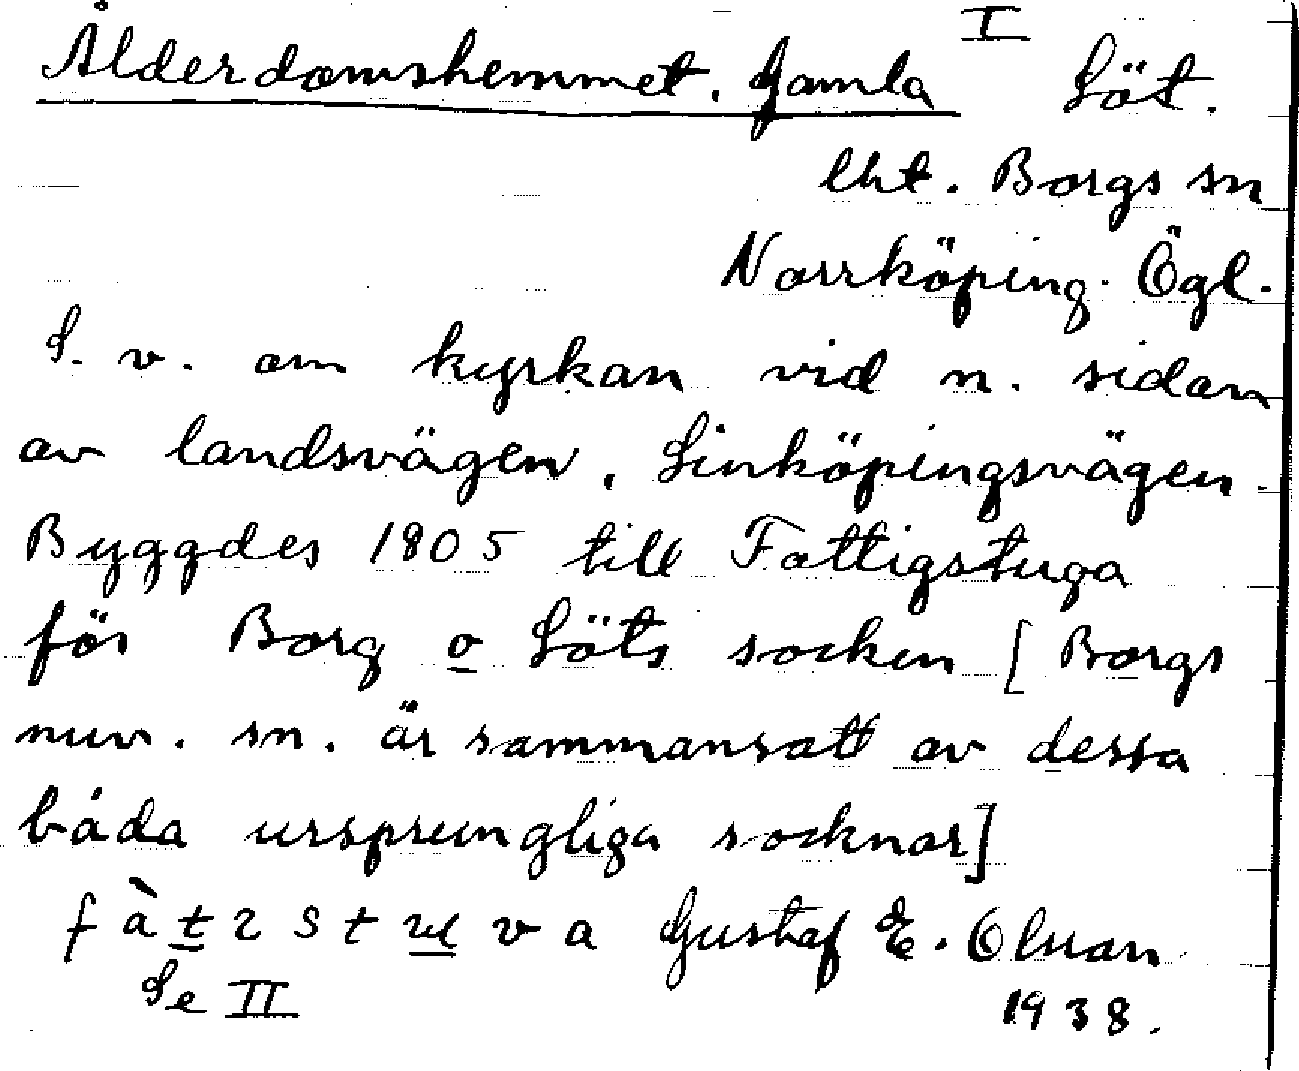 I
Ålderdomshemmet, Gamla Löt.
lht. Borgs sn
Norrköping. Ögl.
S. v. om kyrkan vid n. sidan
av landsvägen, Linköpingsvägen.
Byggdes 1805 till Fattigstuga
för Borg o Löts socken [Borgs
nuv. sn. är sammansatt av dessa
båda ursprungliga socknar]
Gustaf E. Olsson
Se II 1938.